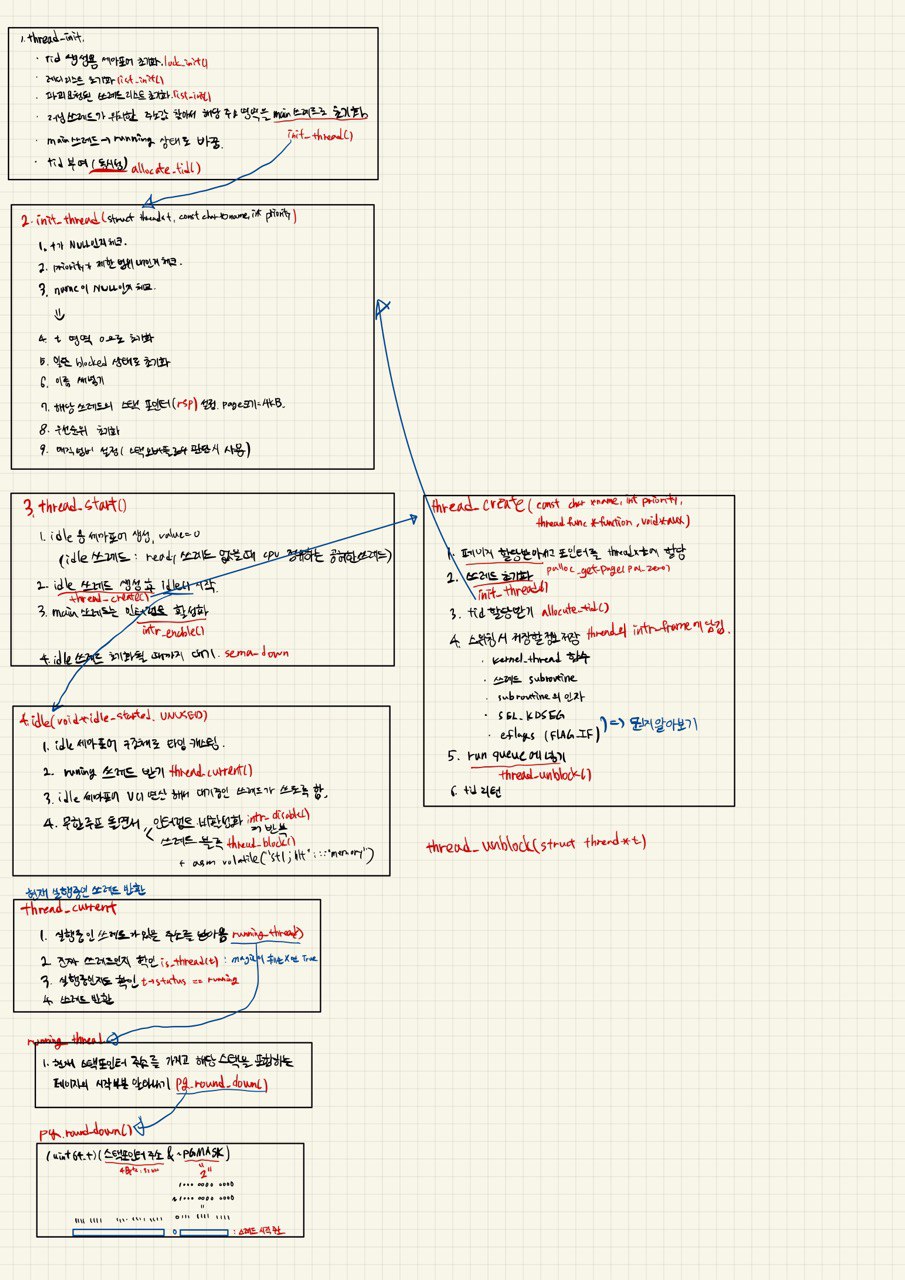 1. thread_init.
· tid 생성용 세마포어 초기화. lock_init()
· 레디리스트 초기화 list_init()
· 파괴요청된 쓰레드리스트 초기화. list_init()
· 러닝 쓰레드가 위치한 주소값 찾아서 해당 주소 영역을 main 쓰레드로 초기화
init_thread()
· main 쓰레드 → running 상태로 바꿈.
· tid 부여 allocate_tid()
2. init_thread(struct thread *t, const char *name, int priority)
1. t가 NULL인지 체크.
2. priority가 제한 범위 내인지 체크.
3. name이 NULL인지 체크.
4. t 영역 0으로 초기화
5. 일단 blocked 상태로 초기화
6. 이름 써넣기
7. 해당 쓰레드의 스택 포인터(rsp) 설정. page크기=4kB.
8. 우선순위 초기화
9. 매직넘버 설정(스택오버플로우 판단시 사용)
3. thread_start()
1. idle 용 세마포어 생성, value=0
(idle 쓰레드 : ready 쓰레드 없을 때 cpu 점유하는 공허한 쓰레드)
2. idle 쓰레드 생성 후 idle() 시작.
thread_create()
3. main 쓰레드는 인터럽트 활성화
intr_enable()
4. idle 쓰레드 초기화될 때까지 대기. sema_down
thread_create(const char *name, int priority,
thread_func *function, void *aux)
1. 페이지 할당받아서 포인터를 thread에 할당
palloc_get_page(PAL_ZERO)
2. 쓰레드 초기화
init_thread()
3. tid 할당받기 allocate_tid()
4. 스위칭시 저장할 정보 저장 thread의 intr_frame에 담김.
· kernel_thread 함수
· 쓰레드 subroutine
· subroutine의 인자
· SEL_KDSEG
· eflags (FLAG_IF) ) => 뭔지 알아보기
5. run queue에 넣기
thread_unblock()
6. tid 리턴
4. idle(void *idle_started, UNUSED)
1. idle 세마포어 구조체로 타입 캐스팅.
2. running 쓰레드 받기 thread_current()
3. idle 세마포어 V() 연산 해서 대기중인 쓰레드가 쓰도록 함.
4. 무한루프 돌면서 인터럽트 비활성화 intr_disable()
쓰레드 블록 thread_block() 반복
+ asm volatile("sti; hlt" ::: "memory")
thread_unblock(struct thread *t)
현재 실행중인 쓰레드 반환
thread_current
1. 실행중인 쓰레드가 있는 주소를 받아옴 running_thread()
2. 진짜 쓰레드인지 확인 is_thread(t) :
3. 실행중인지도 확인 t→status == running
4. 쓰레드 반환
running_thread
1. 현재 스택포인터 주소를 가지고 해당 스택을 포함하는
페이지의 시작부분 알아내기 pg_round_down()
pg_round_down()
(uint64_t)(스택포인터 주소 & ~PGMASK)
: 쓰레드 시작 주소